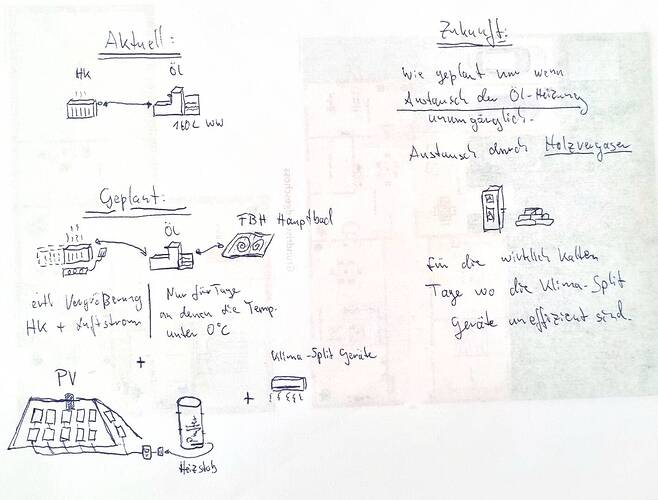 Aktuell:
HK
Öl
160L WW
Geplant:
Öl
FBH Hauptbad
evtl Vergrößerung
HK + Luftstrom
Nur für Tage
an denen die Temp.
unter 0°C
+
Klima-Split Geräte
PV
+
Heizstab
Zukunft:
Wie geplant nur wenn
Austausch der Öl-Heizung
unumgänglich.
Austausch durch Holzvergaser
für die wirklich kalten
Tage wo die Klima-Split
Geräte uneffizient sind.